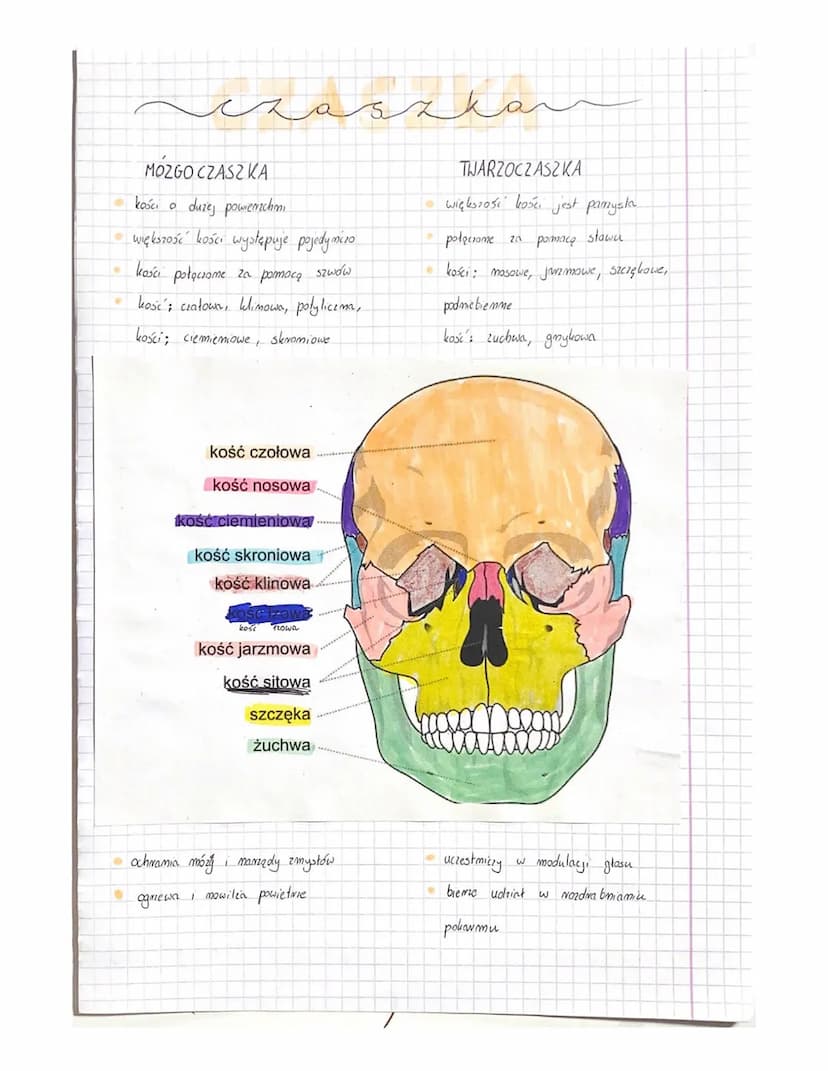 CZASZKA
czaszka
MÓZGOCZASZKA
kości o dużej powierzchni
większość kości występuje pojedynczo
kości połączone za pomocą szwów
kość; czołowa, klinowa, potyliczna,
kości; ciemieniowe, skroniowe
TWARZOCZASZKA
większość kości jest parzysta
połączone za pomocą stawu
kości: nosowe, jarzmowe, szczękowe,
podniebienne
kość: żuchwa, gnykowa
kość czołowa
kość nosowa
kość ciemieniowa
kość skroniowa
kość klinowa
kość łzowa
kość łzowa
kość jarzmowa
kość sitowa
szczęka
żuchwa
ochrania mózg i narządy zmysłów
ogrzewa i nawilża powietrze
uczestniczy w modulacji głosu
bierze udział w rozdrabnianiu
pokarmu